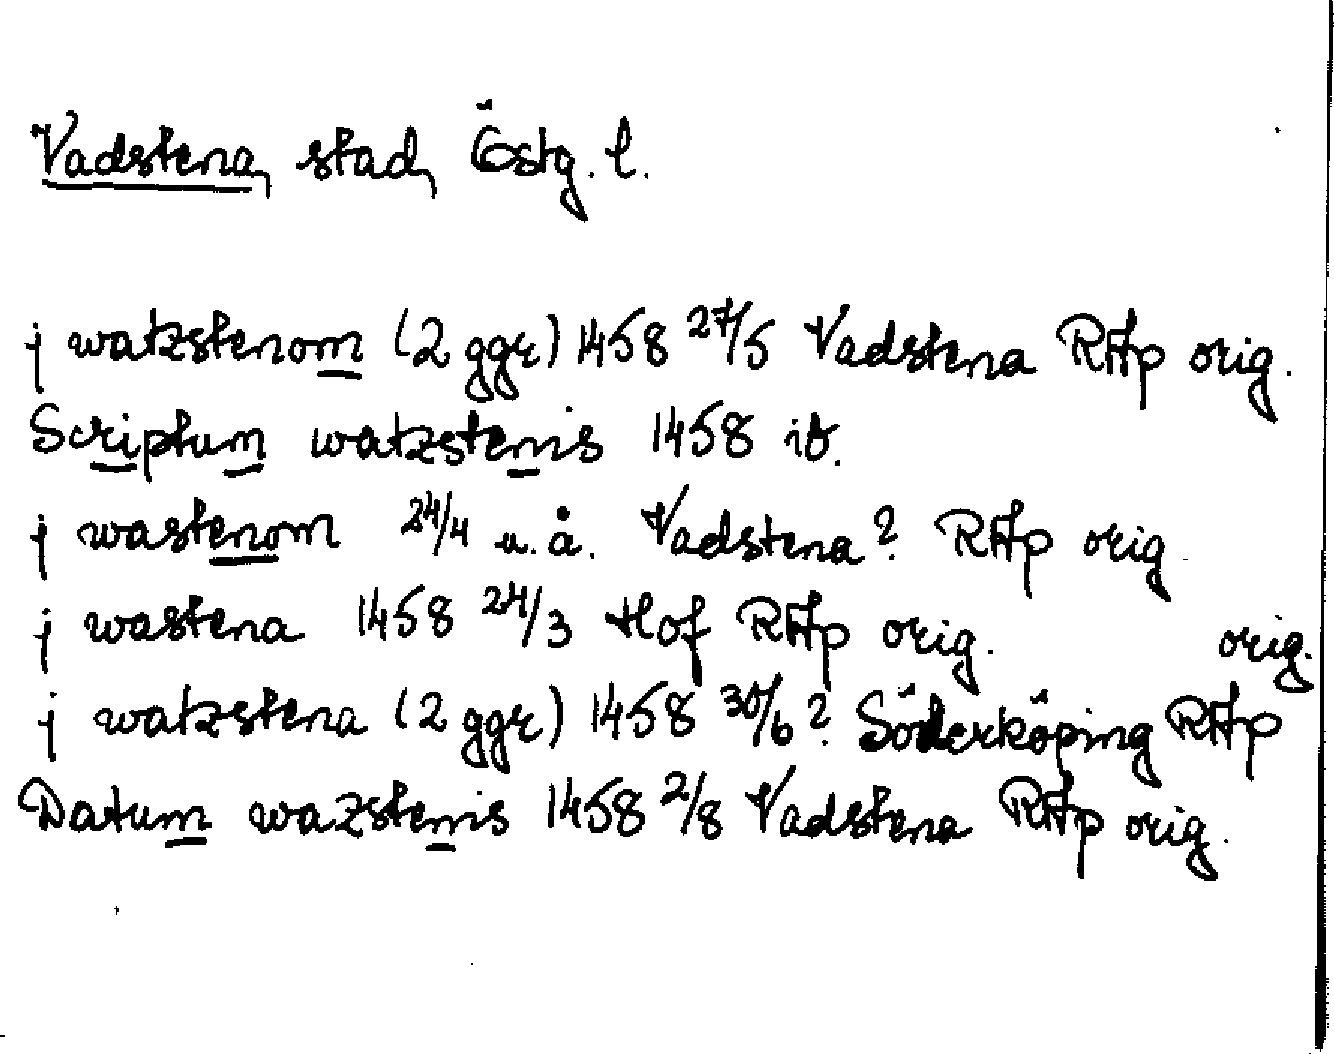 Vadstena, stad, Östg. l.
j watzstenom (2 ggr) 1458 27/5 Vadstena RAp orig.
Scriptum watzstenis 1458 ib.
j wastenom 24/4 u. å. Vadstena? RAp orig.
j wastena 1458 24/3 Hof RAp orig.
j watzstena (2 ggr) 1458 30/6? Söderköping RAp orig.
Datum wazstenis 1458 2/8 Vadstena RAp orig.